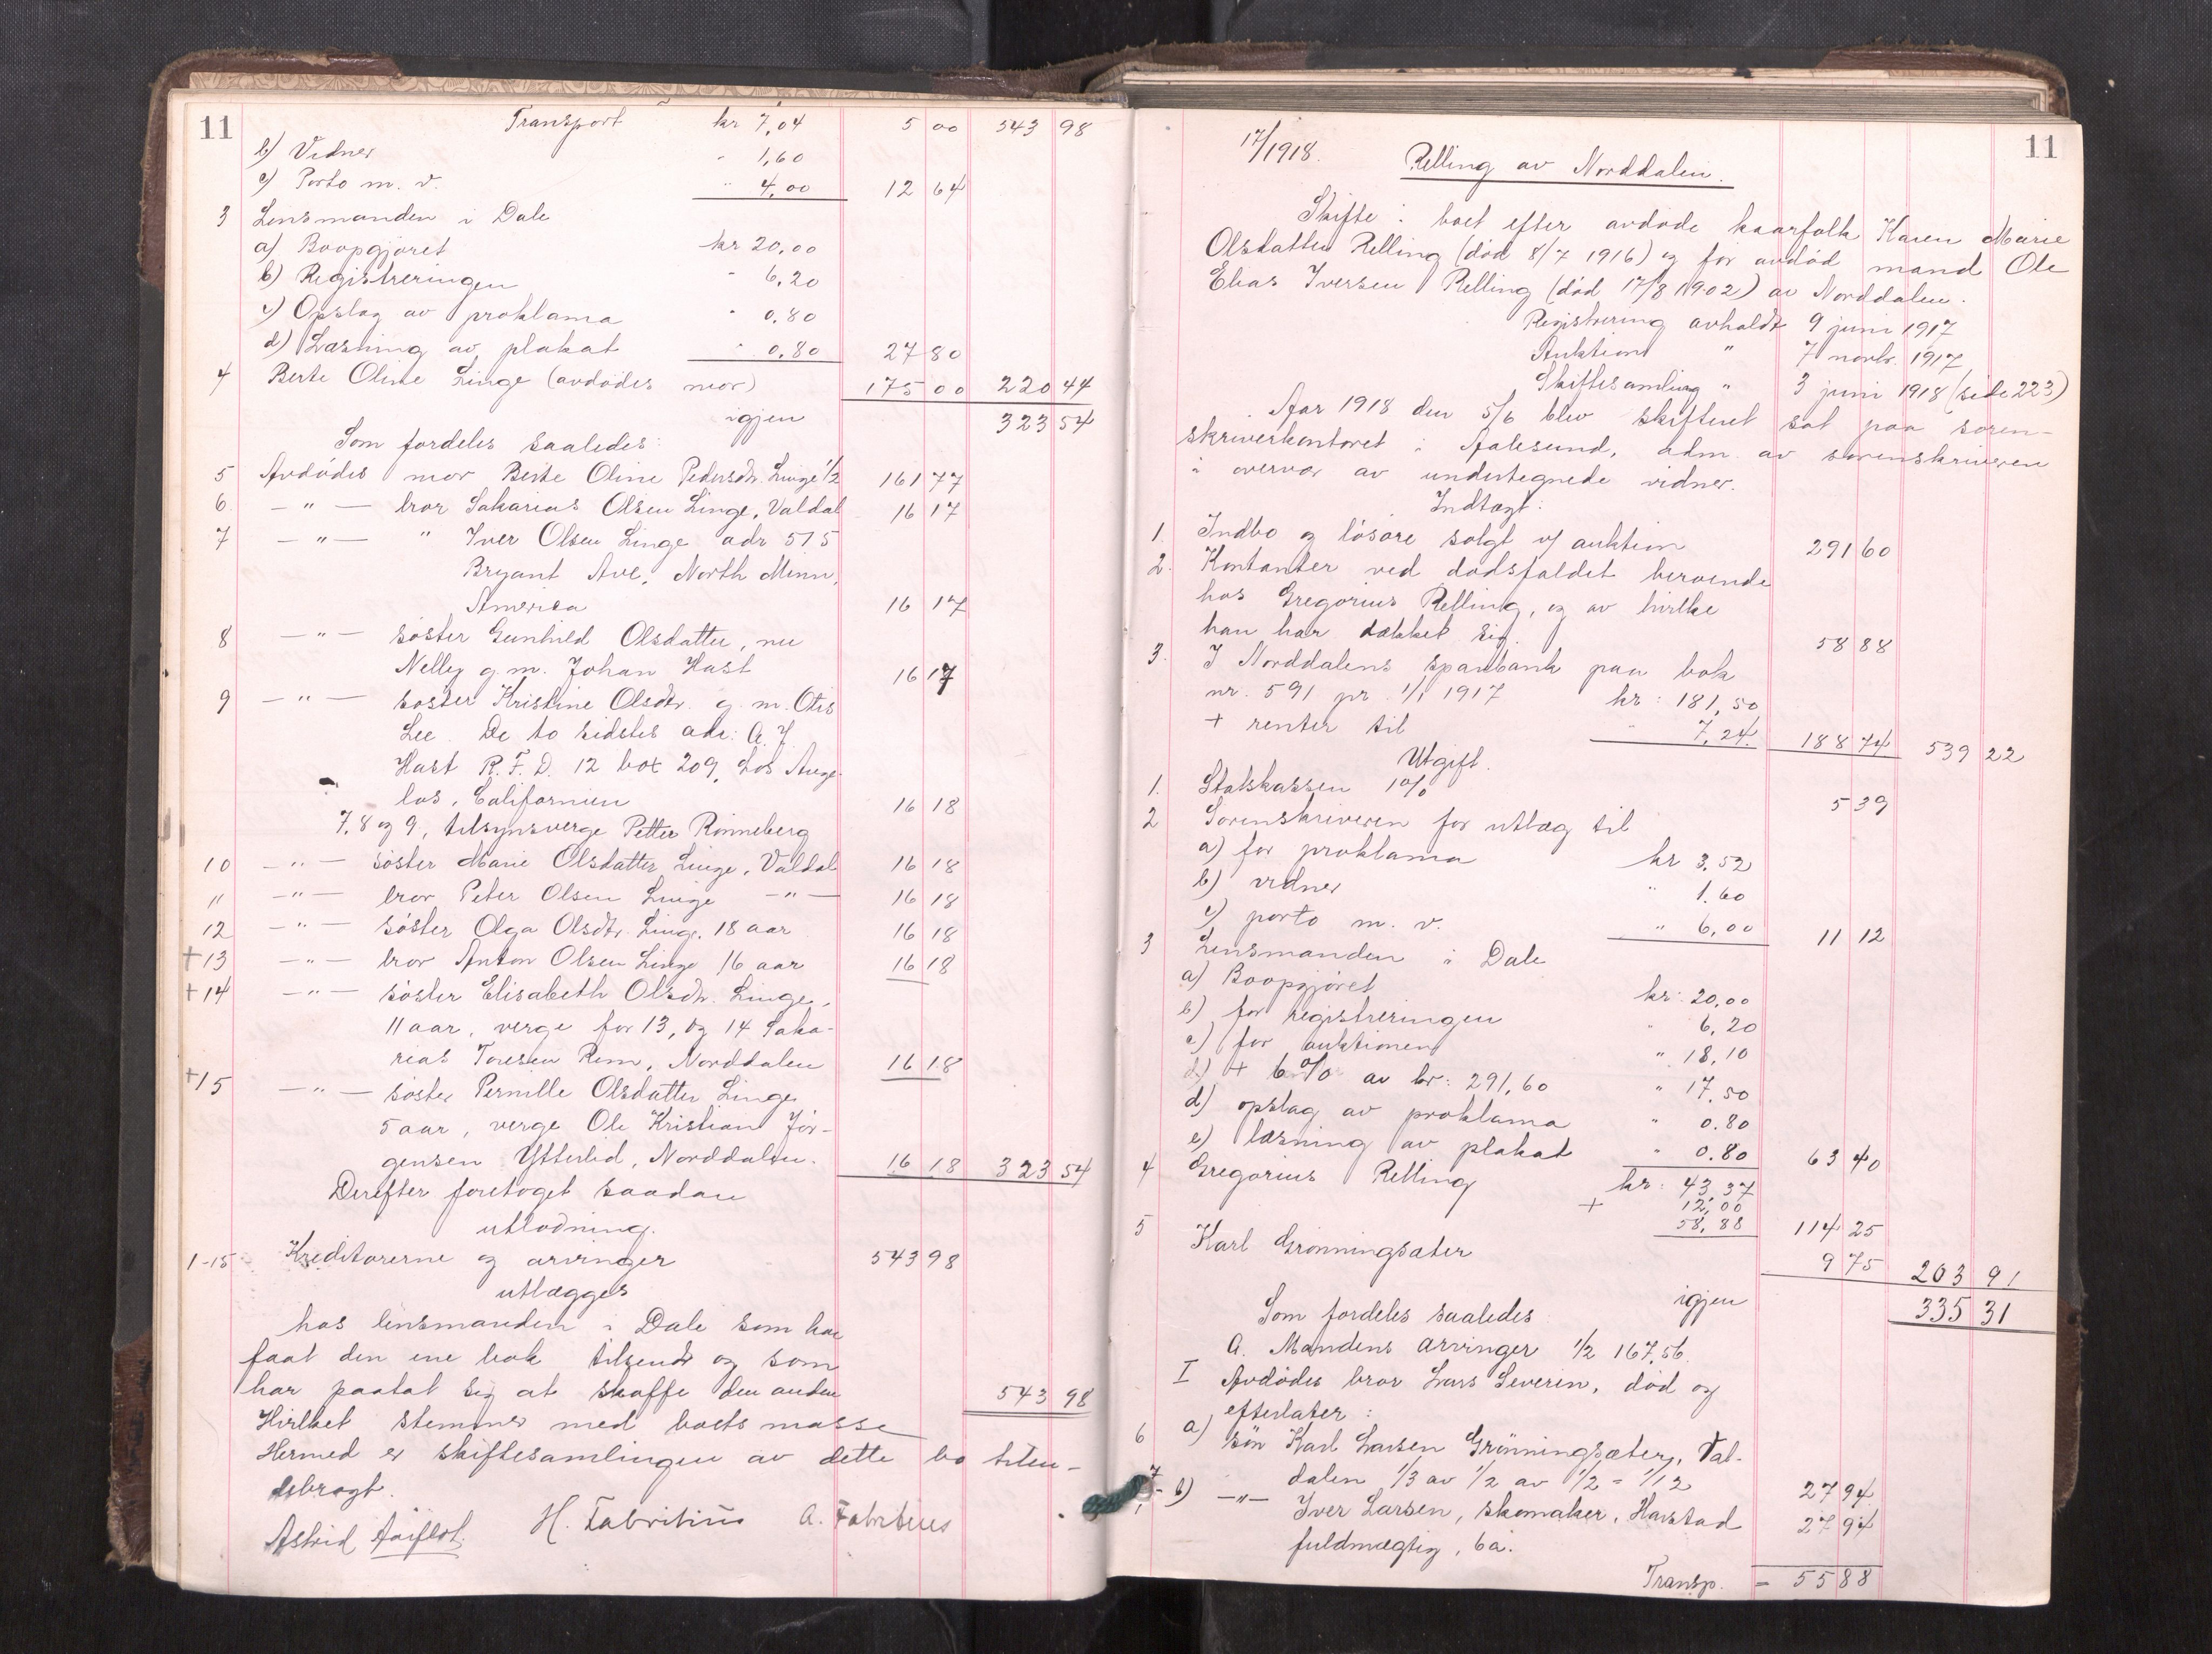 11 Transport kr 7,04 5 00 543 98
b) Vidner " 1,60
c) Porto m. v. " 4,00 12 64
3 Lensmanden i Dale
a) Boopgjøret kr 20,00
b) Registreringen " 6,20
c) Opslag av proklama " 0,80
d) Læsning av plakat " 0,80 27 80
4 Berte Oline Linge (avdødes mor) 175 00 220 44
igjen 323 54
Som fordeles saaledes:
5 Avdødes mor Berte Oline Pedersdtr. Linge 1/2 161 77
6. — " — bror Sakarias Olsen Linge, Valdal 16 17
7 — " — " Iver Olsen Linge adr 515
Bryant Ave, North Minn,
America 16 17
8 — " — søster Gunhild Olsdatter, nu
Nelly g. m. Johan Hast 16 17
9 — " — søster Kristine Olsdtr. g. m. Otis
Lee. De to sidstes adr: A. J.
Hast R. F. D. 12 box 209, Los Ange-
los, Californien 16 18
7, 8 og 9, tilsynsverge Petter Rønneberg
10 — " — søster Marie Olsdatter Linge, Valdal 16 18
11 — " — bror Peter Olsen Linge — " — 16 18
12 — " — søster Olga Olsdtr. Linge. 18 aar 16 18
+13 — " — bror Anton Olsen Linge 16 aar 16 18
+14 — " — søster Elisabeth Olsdtr. Linge,
11 aar, verge for 13, og 14 Saka-
rias Toresen Rem, Norddalen 16 18
+15 — " — søster Pernille Olsdatter Linge
5 aar, verge Ole Kristian Jør-
gensen Ytterlid, Norddalen. 16 18 323 54
Derefter foretoges saadan
utlodning.
1-15 Kreditorerne og arvinger 543 98
utlægges
hos lensmanden i Dale som har
faat den ene bok tilsendt og som
har paatat sig at skaffe den anden 543 98
Hvilket stemmer med boets masse
Hermed er skiftesamlingen av dette bo tilen-
debragt.
Astrid Aaflot. H. Fabritius A. Fabritius
17/1918. 11
Relling av Norddalen.
Skifte i boet efter avdøde kaarfolk Karen Marie
Olsdatter Relling (død 8/7 1916) og før avdød mand Ole
Elias Iversen Relling (død 17/8 1902) av Norddalen.
Registrering avholdt 9 juni 1917
Auktion " 7 novbr. 1917
Skiftesamling " 3 juni 1918 (side 223)
Aar 1918 den 5/6 blev skifteret sat paa soren-
skriverkontoret i Aalesund, adm. av sorenskriveren
i overvær av undertegnede vidner.
Indtægt:
1. Indbo og løsøre solgt v/ auktion 291 60
2. Kontanter ved dødsfaldet beroende
hos Gregorius Relling, og av hvilke
han har dækket sig. 58 88
3. I Norddalens sparebank paa bok
nr. 591 pr. 1/1 1917 kr: 181,50
+ renter til " 7,24. 188 74 539 22
Utgift.
1. Statskassen 1% 5 39
2 Sorenskriveren for utlæg til
a) for proklama kr 3,52
b) vidner " 1.60
c) porto m. v. " 6,00 11 12
3 Lensmanden i Dale
a) Boopgjøret kr: 20,00
b) for registreringen " 6,20
c) for auktionen " 18,10
d) + 6% av kr: 291,60 " 17,50
d) opslag av proklama " 0.80
e) læsning av plakat " 0.80 63 40
4 Gregorius Relling kr: 43,37
+ 12,00
58,88 114 25
5 Karl Grønningsæter 9 75 203 91
igjen 335 31
Som fordeles saaledes
A. Mandens arvinger 1/2 167,56.
I Avdødes bror Lars Severin, død og
efterlater:
6 a) søn Karl Larsen Grønningsæter, Val-
dalen 1/3 av 1/2 av 1/2 = 1/12 27 94
7 b) — " — Iver Larsen, skomaker, Harstad 27 94
fuldmægtig, 6a.
Transp. = 55 88